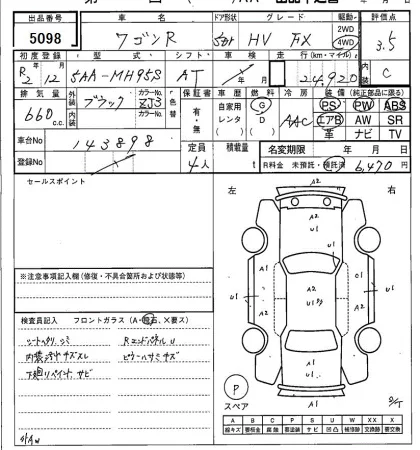 出品番号 車名 ドア形状 グレード 駆動 評価点
5098 ワゴンR 5ドア HV FX 2WD 4WD 3.5
初度登録 型式 シフト 車検 走行(km・マイル) 内装
R2 12 5AA-MH95S AT 24,920 C
排気量 外装 カラーNo. 色替 保証書 車歴 燃料 冷房 装備(純正部品に限る)
660 c.c. ブラック ZJ3 有・無 自家用 レンタ G D AAC PS PW ABS
内装 カラーNo. エアB AW SR
革 ナビ TV
車台No 143898 定員 積載量 名変期限 年 月 日
登録No 4人 t R料金 未預託・預託済 6,470円
セールスポイント 左 右
※注意事項記入欄(修復・不具合箇所および状態等)
検査員記入 フロントガラス(A・飛石、×要ス)
シートヘリ、シミ RエンドパネルU
内装汚キズスレ
下廻りペイント、サビ
A2
A2
U1
A1
U1
U1
A1
A1
P
スペア
A B C P S U W X XX
線キズ 要板金 腐蝕 要塗装 サビ 凹凸 補修跡 要交換 交換済